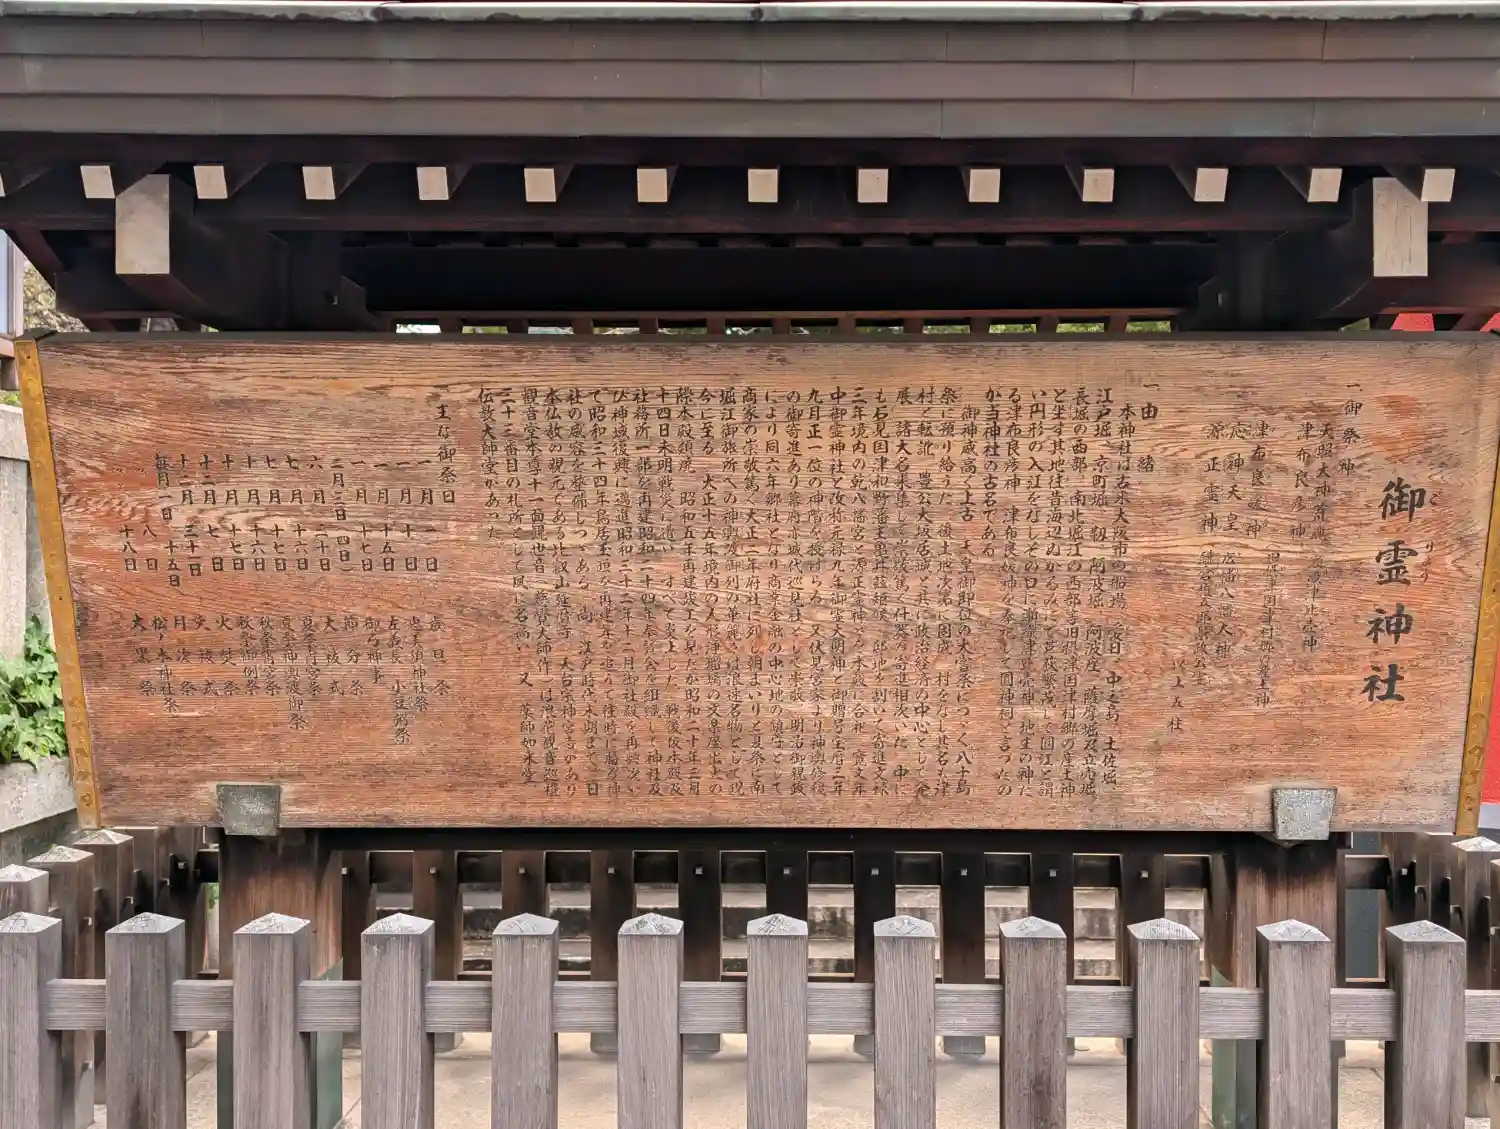 御霊神社
ごりょう
一、御祭神
天照大神荒魂
津布良彦神
津布良媛神
応神天皇 広幡八幡大神
源正霊神 鎌倉権五郎景政公霊
以上五社
一、由緒
本神社は古来大阪市の船場、愛日、中之島、土佐堀、
江戸堀、京町堀、靱、阿波堀、阿波座、薩摩堀及立売堀、
長堀の西部、南北堀江の西部等旧摂津国津村郷の産土神
と坐す其地往昔海辺
い円形の入江をなしその口に瀬織津比売神、地主の神た
る津布良彦神、津布良媛神を奉祀して圓神祠と言ったの
が当神社の古名である
御神威高く上古、天皇御即位の大嘗祭につぐ八十島
祭に預り給うた 後土地次第に固成、村をなし其名も津
村と転訛、豊公大坂居城と共に政治経済の中心として発
展、諸大名来集して崇敬篤く什器の寄進相次いた 中に
も石見国津和野藩主亀井茲矩侯、邸地を割いて寄進文禄
三年境内の乾八幡宮と源正霊神とを本殿に合祀、寛文年
中御霊神社と改称元禄九年御霊大明神と御贈号宝暦三年
九月正一位の神階を授けらる 又伏見宮家より神輿修復
の御寄進あり幕府亦城代巡見社として崇敬、明治御親政
により同六年郷社となり商業金融の中心地の鎮守として
商家の崇敬篤く大正二年府社に列し朝まいりと夏祭に南
堀江御旅所への神輿渡御列の華麗さは浪速名物として現
今に至る 大正十五年境内の人形浄瑠璃の文楽座出火の
際本殿類焼、昭和五年再建竣工を見たが昭和二十年三月
十四日未明戦災に遭い、すべて炎上した 戦後仮本殿及
社務所一部を再建昭和二十四年奉賛会を組織して神社及
び神域復興に邁進昭和三十二年十二月御社殿を再興次い
で昭和三十四年鳥居玉垣を再建年を追うて往時に勝る神
社の威容を整備しつゝある 尚、江戸時代末期まで、日
本仏教の親元である比叡山延暦寺、天台宗神宮寺があり
観音堂本尊十一面観世音(慈覚大師作)は浪花観音巡礼
三十三番目の札所として夙に名高い 又、薬師如来堂、
伝教大師堂があった
主な御祭日
一月一日 歳旦祭
一月十日 恵美須神社祭
一月十五日 左義長 小豆粥祭
一月十七日 御弓神事
二月三日(四日) 節分祭
六月三十日 大祓式
七月十六日 夏祭宵宮祭
七月十七日 夏祭神輿渡御祭
十月十六日 秋祭宵宮祭
十月十七日 秋祭御例祭
十一月八日 火焚祭
十二月三十一日 大祓式
毎月一日 十五日 月次祭
八日 松ノ木神社祭
十八日 大黒祭